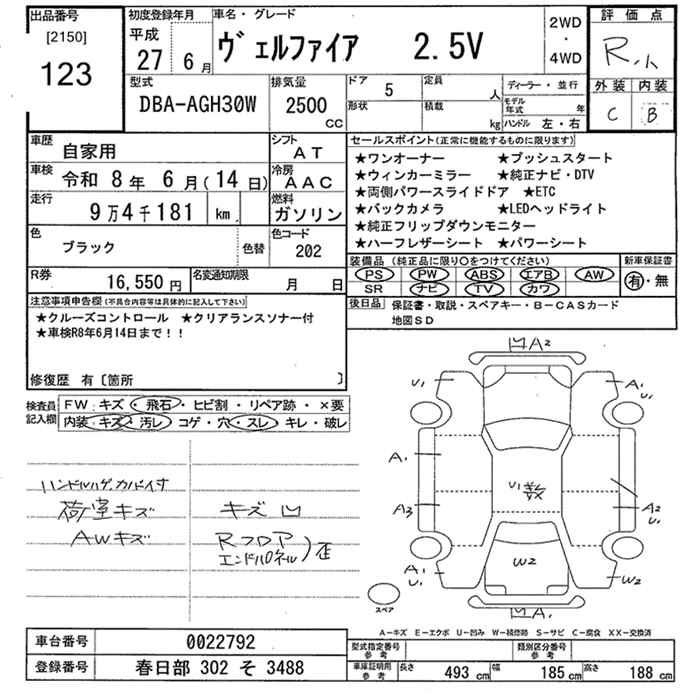 出品番号
[2150]
123
初度登録年月
平成
27 6月
車名・グレード
ヴェルファイア 2.5V
2WD
・
4WD
評価点
R
外装 内装
C B
型式
DBA-AGH30W
排気量
2500
CC
ドア
5
定員
人
形状
積載
kg
ディーラー・並行
モデル年式
年
ハンドル 左・右
車歴
自家用
シフト
AT
車検
令和 8年 6月(14日)
冷房
AAC
走行
9万4千181 km
燃料
ガソリン
色
ブラック
色替
色コード
202
R券
16,550円
名変通知期限
月 日
セールスポイント(正常に機能するものに限ります)
★ワンオーナー ★プッシュスタート
★ウィンカーミラー ★純正ナビ・DTV
★両側パワースライドドア ★ETC
★バックカメラ ★LEDヘッドライト
★純正フリップダウンモニター
★ハーフレザーシート ★パワーシート
装備品 (純正品に限り○をつけてください)
PS PW ABS エアB AW
SR ナビ TV カワ
新車保証書
有・無
後日品
保証書・取説・スペアキー・B-CASカード
地図SD
注意事項申告欄(不具合内容等は具体的に記入して下さい)
★クルーズコントロール ★クリアランスソナー付
★車検R8年6月14日まで!!
修復歴 有〔箇所 〕
検査員
記入欄
FW:キズ・飛石・ヒビ割・リペア跡・×要
内装:キズ・汚レ・コゲ・穴・スレ・キレ・破レ
ハンドルハゲ、カバー付
荷室キズ
AWキズ
キズ凹
Rフロア
エンドパネル)歪
凹A2
U1
A1
U1
A1
A3
U1
XX
A2
U1
A1
U1
W2
W2
凹A1
スペア
A-キズ E-エクボ U-凹み W-補修跡 S-サビ C-腐食 XX-交換済
車台番号
0022792
登録番号
春日部 302 そ 3488
型式指定番号
参考
類別区分番号
参考
車庫証明用
参考
長さ 493 cm
幅 185 cm
高さ 188 cm